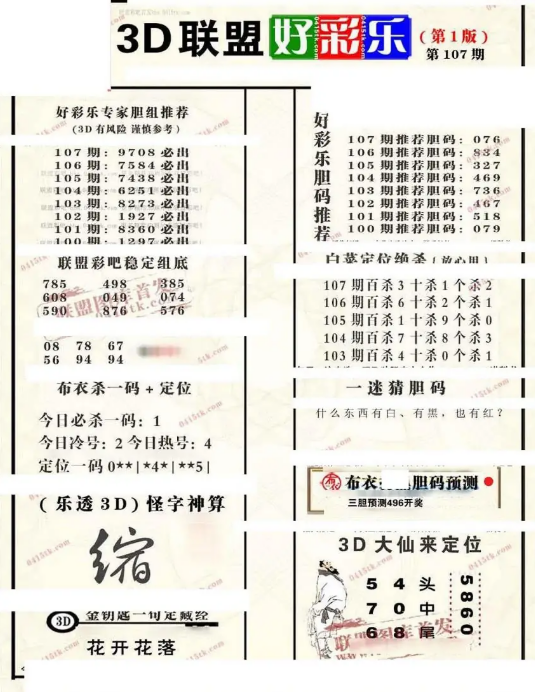 3D联盟好彩乐
(第1版)
第107期
好彩乐专家胆组推荐
(3D有风险 谨慎参考)
107期:9708必出
106期:7584必出
105期:7438必出
104期:6251必出
103期:8273必出
102期:1927必出
101期:8360必出
100期:1297必出
联盟彩吧稳定组底
785 498 385
608 049 074
590 876 576
08 78 67
56 94 94
布衣杀一码+定位
今日必杀一码:1
今日冷号:2 今日热号:4
定位一码 0**|*4*|**5|
(乐透3D)怪字神算
缩
3D 金钥匙一句定藏经
花开花落
好彩乐胆码推荐
107期推荐胆码:076
106期推荐胆码:834
105期推荐胆码:327
104期推荐胆码:469
103期推荐胆码:736
102期推荐胆码:467
101期推荐胆码:518
100期推荐胆码:079
白菜定位绝杀(放心用)
107期百杀3十杀1个杀2
106期百杀6十杀2个杀1
105期百杀1十杀9个杀0
104期百杀7十杀8个杀3
103期百杀4十杀0个杀1
一迷猜胆码
什么东西有白、有黑,也有红?
布衣
胆码预测
三胆预测496开奖
3D大仙来定位
5 4 头
7 0 中
6 8 尾
5860